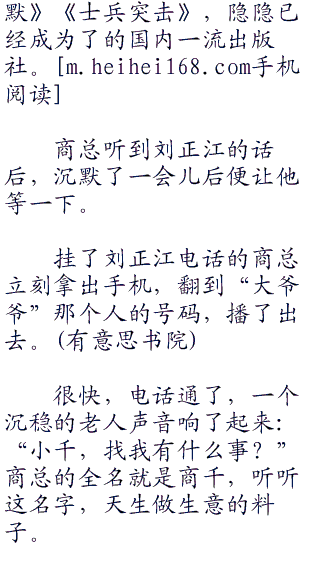 默》《士兵突击》，隐隐已
经成为了的国内一流出版
社。[m.heihei168.com手机
阅读]
商总听到刘正江的话
后，沉默了一会儿后便让他
等一下。
挂了刘正江电话的商总
立刻拿出手机，翻到“大爷
爷”那个人的号码，播了出
去。(有意思书院)
很快，电话通了，一个
沉稳的老人声音响了起来：
“小千，找我有什么事？”
商总的全名就是商千，听听
这名字，天生做生意的料
子。